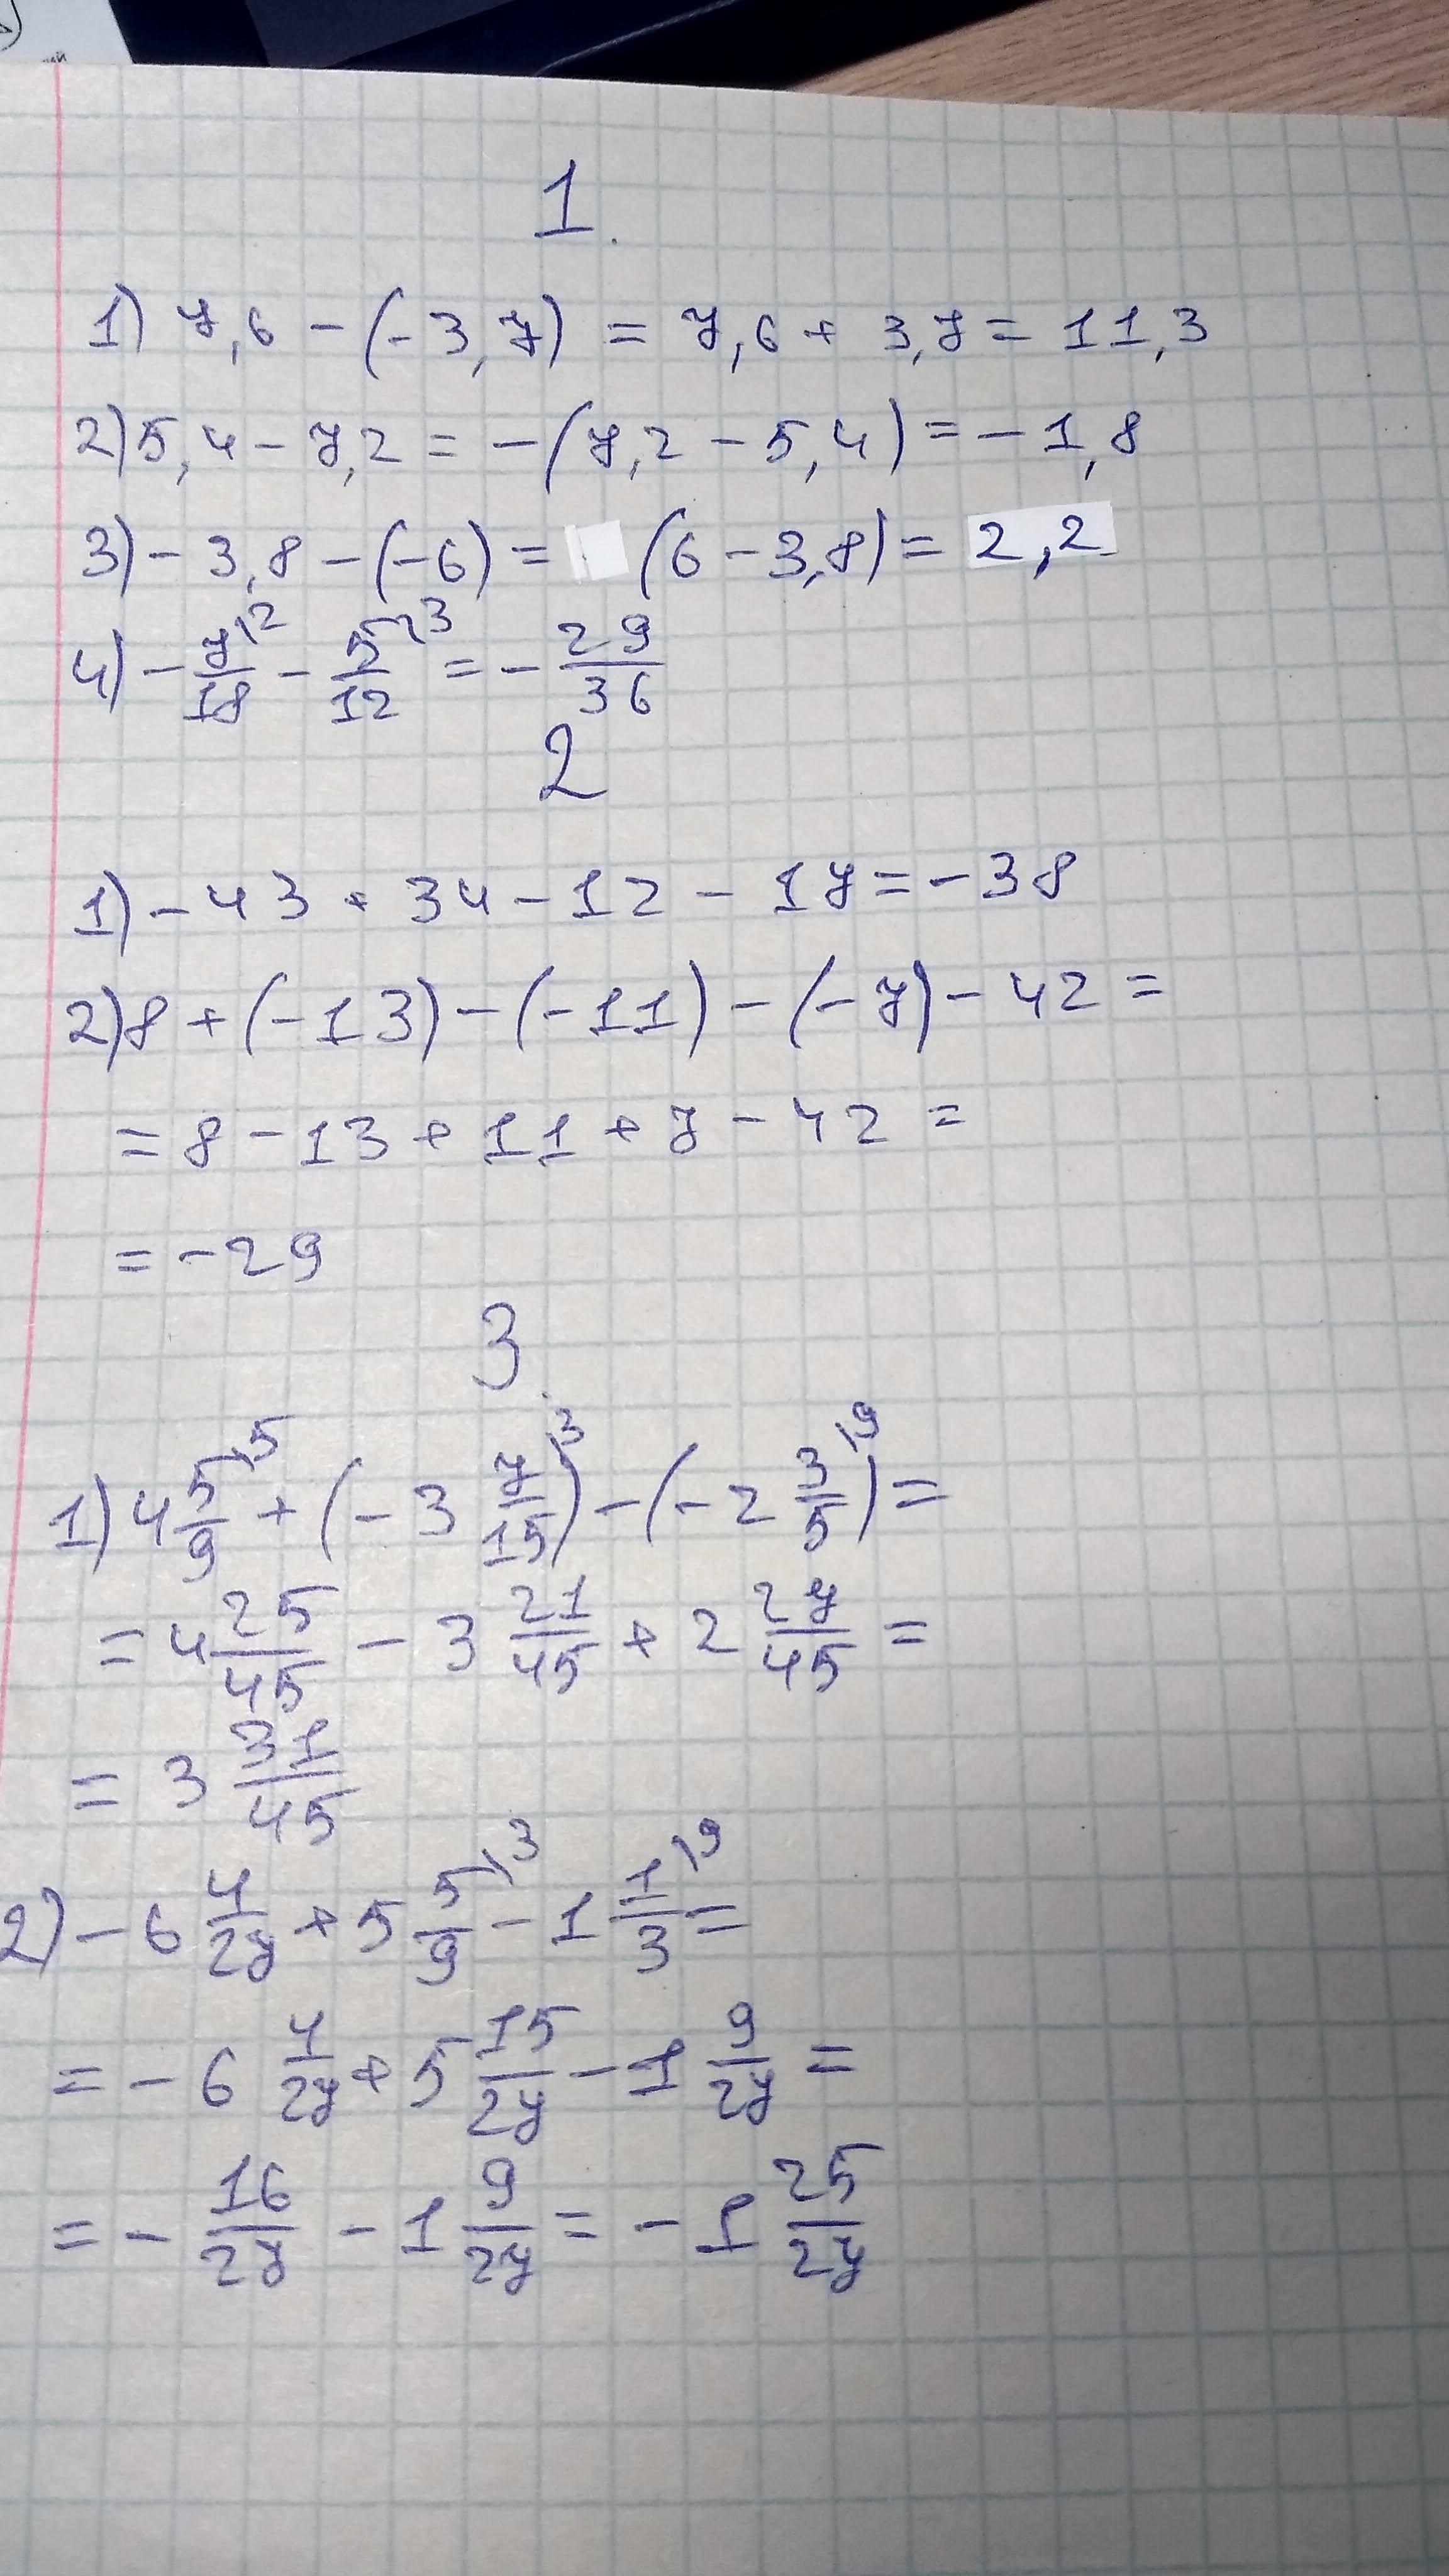 1.
1) 7,6 - (-3,7) = 7,6 + 3,7 = 11,3
2) 5,4 - 7,2 = -(7,2 - 5,4) = -1,8
3) -3,8 - (-6) = (6 - 3,8) = 2,2
4) -7\2/18 - 5\3/12 = -29/36
2
1) -43 + 34 - 12 - 17 = -38
2) 8 + (-13) - (-11) - (-7) - 42 =
= 8 - 13 + 11 + 7 - 42 =
= -29
3.
1) 4 5\5/9 + (-3 7\3/15) - (-2 3\9/5) =
= 4 25/45 - 3 21/45 + 2 27/45 =
= 3 31/45
2) -6 4/27 + 5 5\3/9 - 1 1\9/3 =
= -6 4/27 + 5 15/27 - 1 9/27 =
= -16/27 - 1 9/27 = -1 25/27